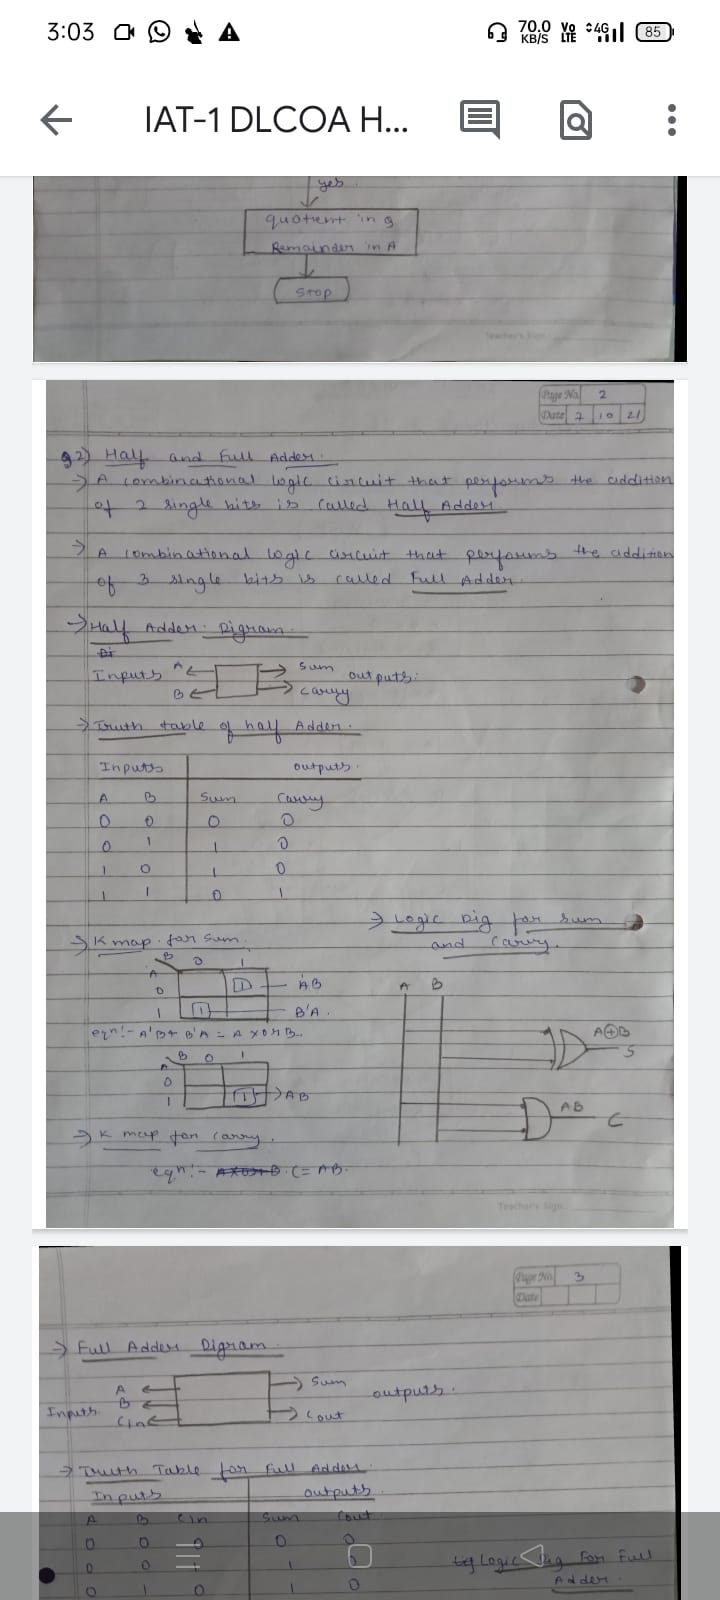 3:03
70.0 KB/S
Vo LTE
4G
85
IAT-1 DLCOA H...
yes
quotient in Q
Remainder in A
Stop
Teacher's Sign
Page No. 2
Date 7 10 21
Q2) Half and Full Adder.
→ A combinational logic circuit that performs the addition
of 2 single bits is called Half Adder
→ A combinational logic circuit that performs the addition
of 3 single bits is called Full Adder.
→ Half Adder Digram.
Inputs A B Sum Carry outputs.
→ Truth table of half Adder.
Inputs outputs.
A B Sum Carry
0 0 0 0
0 1 1 0
1 0 1 0
1 1 0 1
→ Logic Dig for sum
and carry.
→ K map for sum.
B 0 1
A
0 1 A'B
1 1 B'A.
eqn:- A'B + B'A = A XOR B.
A B
A⊕B
S
AB
C
B 0 1
A
0
1 1 → AB
→ K map for carry.
eqn:- A XOR B. C = AB.
Teacher's Sign
Page No. 3
Date
→ Full Adder Digram
Inputs A B Cin Sum Cout outputs.
→ Truth Table for Full Adder
Inputs outputs
A B Cin Sum Cout
0 0 0 0 0
0 0 1
0 1 0 1 0
Logic Dig For Full
Adder.